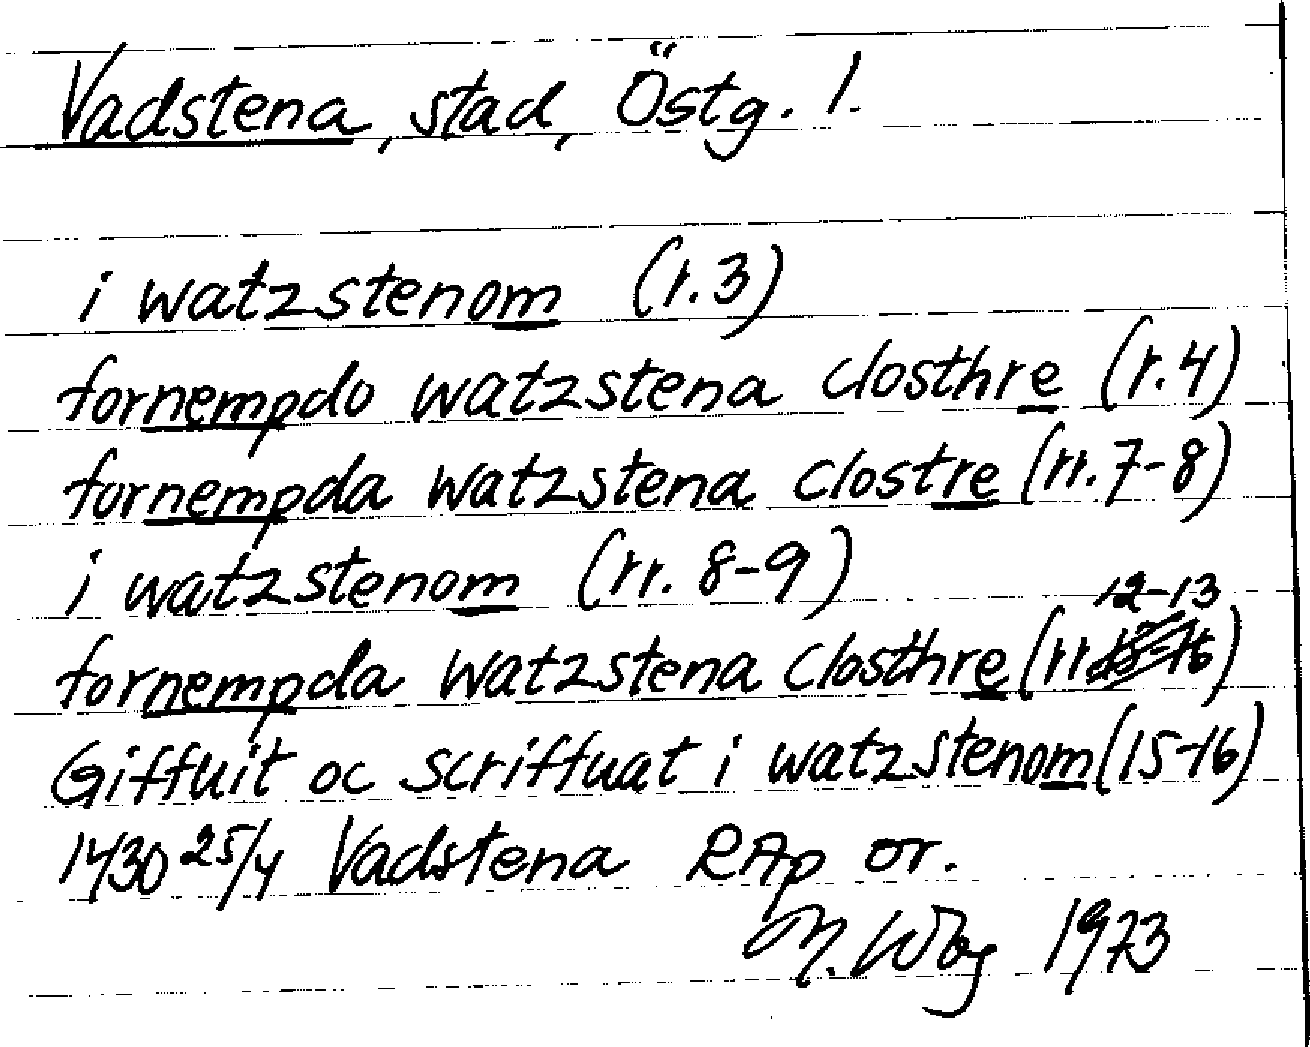 Vadstena, stad, Östg. l.
i watzstenom (r.3)
fornempdo watzstena closthre (r.4)
fornempda watzstena clostre (rr.7-8)
i watzstenom (rr. 8-9)
fornempda watzstena closthre (rr. 12-13)
Giffuit oc scriffuat i watzstenom (15-16)
1430 25/4 Vadstena RAp or.
1973